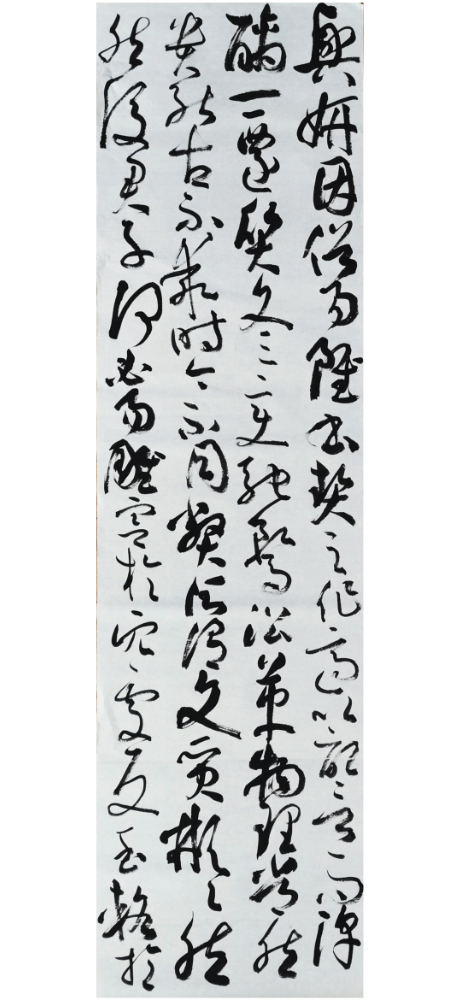 興妍因俗易雖書契之作適以記言而淳
醨一遷質文三變馳鶩沿革物理常然
貴能古不乖時今不同弊所謂文質彬彬然
然後君子何必易雕宮於穴處反玉輅於